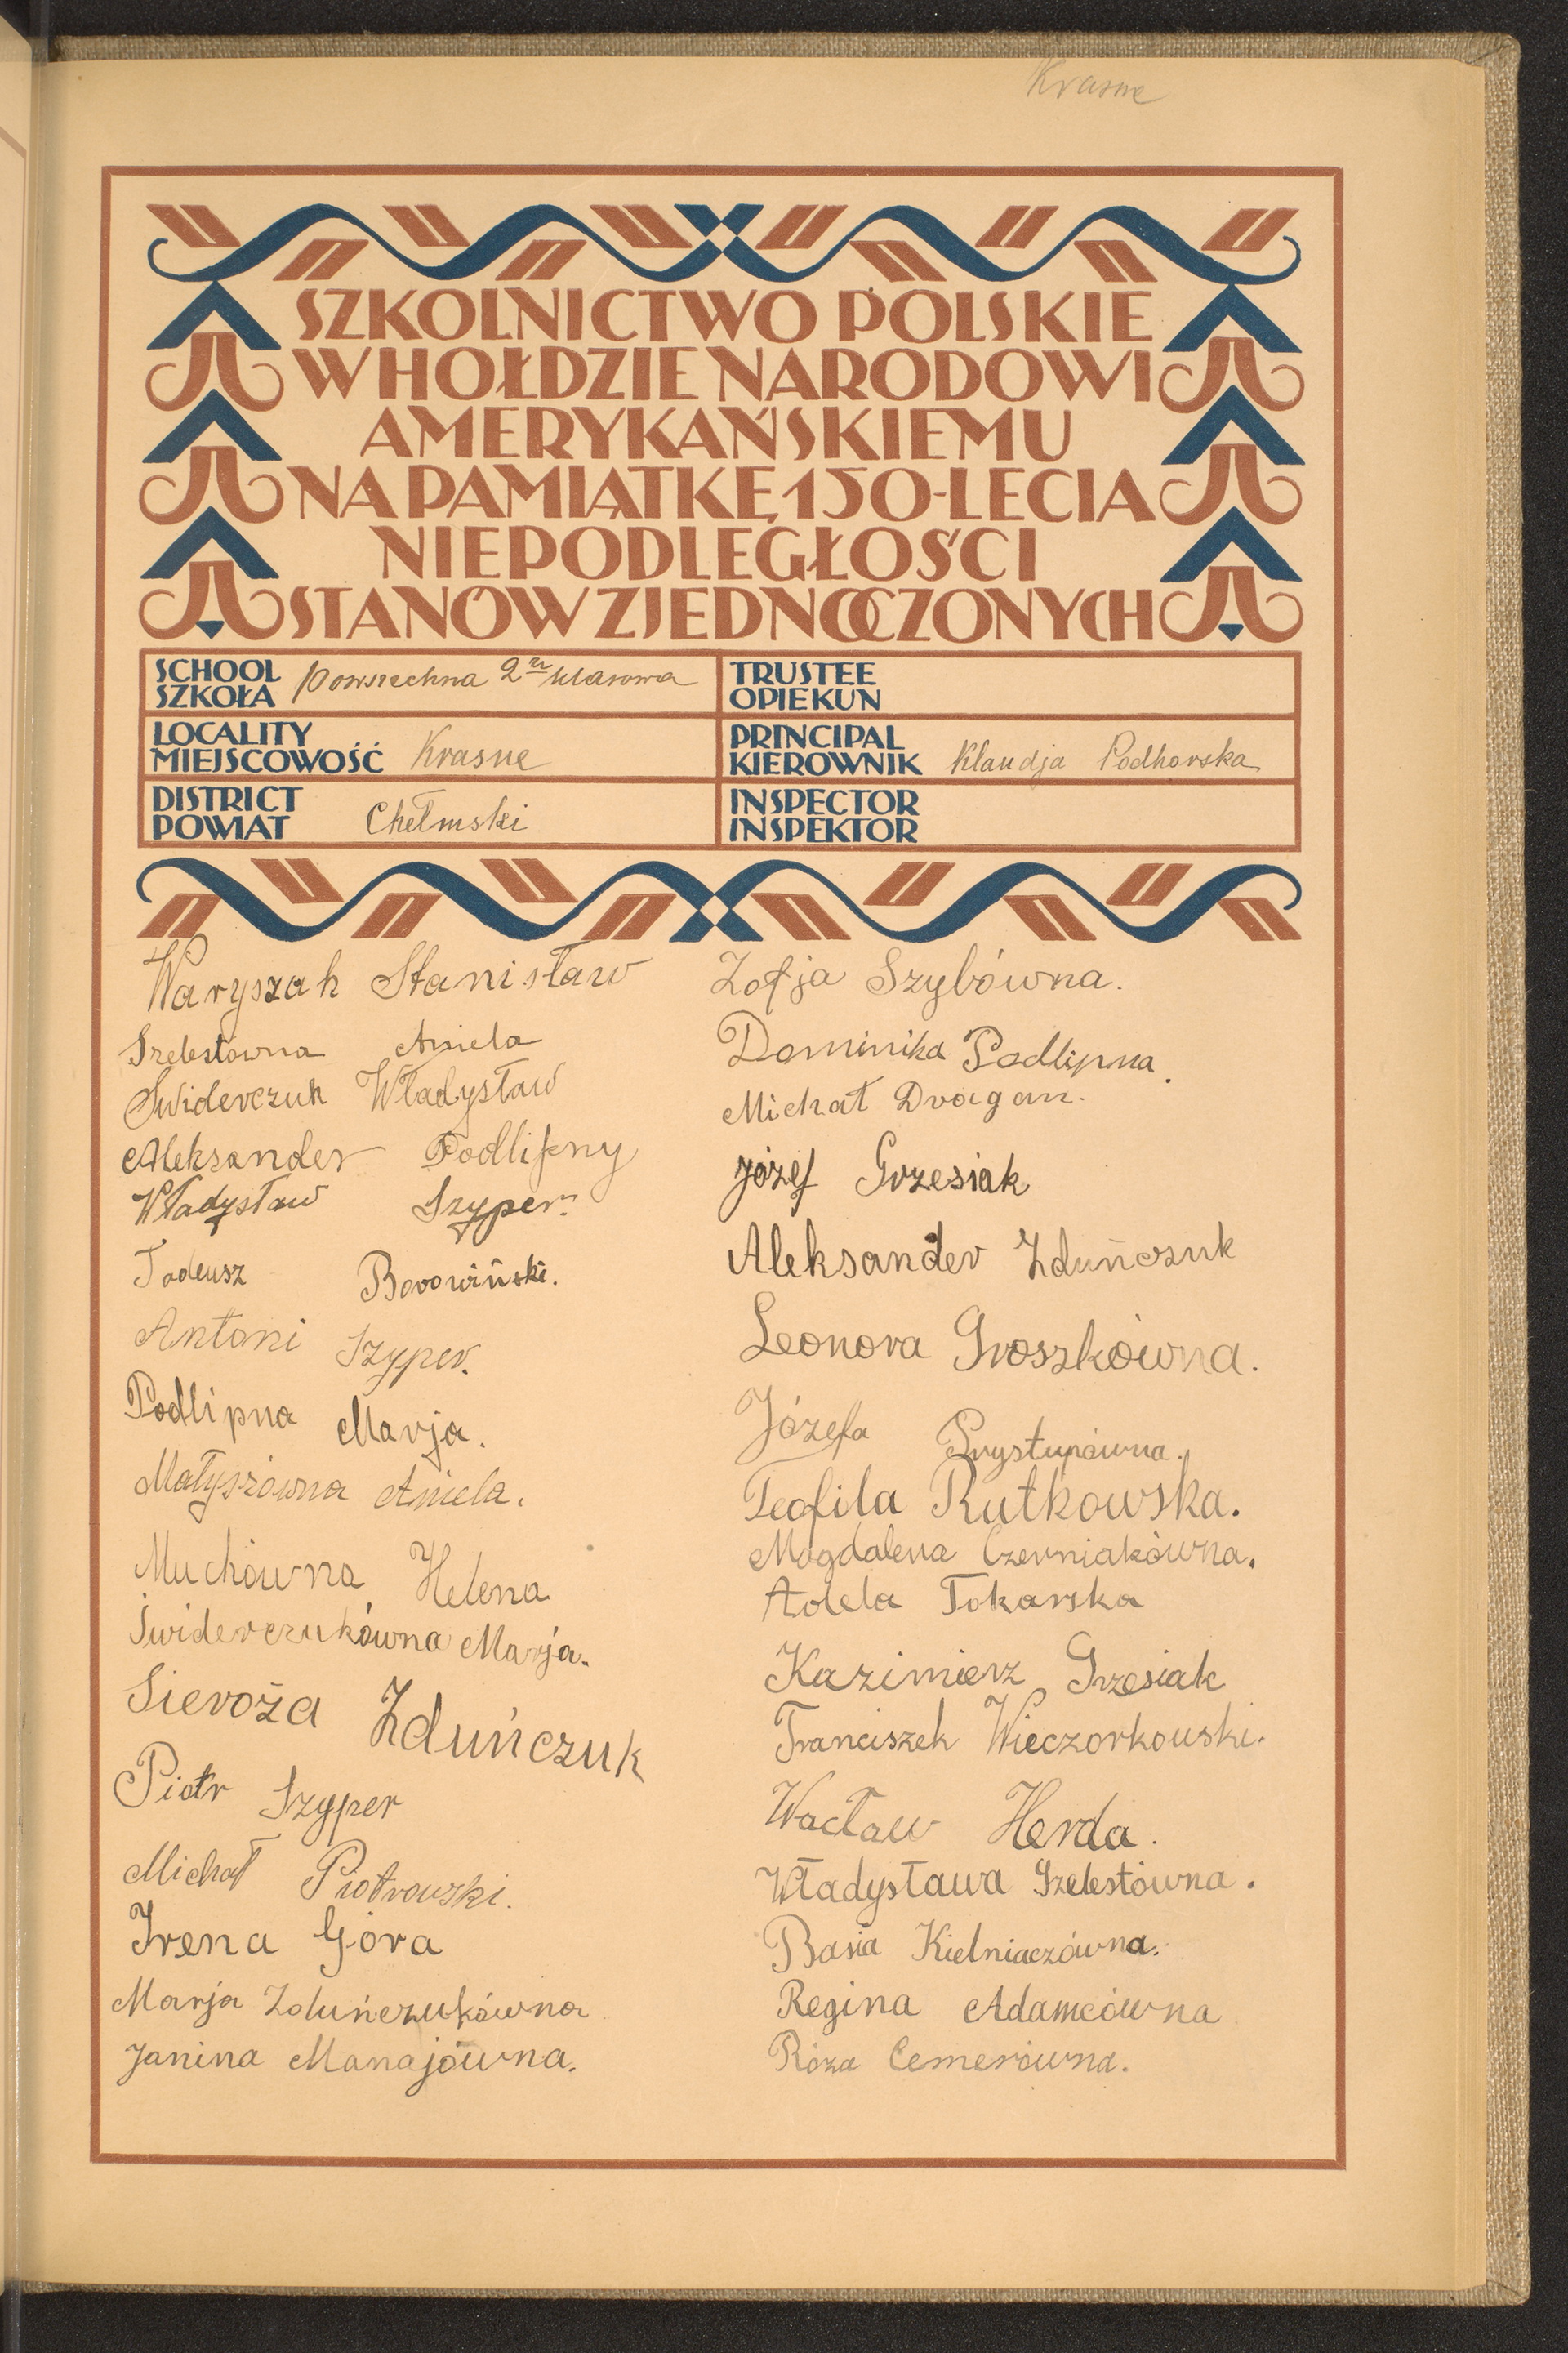 Krasne
SZKOLNICTWO POLSKIE
W HOŁDZIE NARODOWI
AMERYKAŃSKIEMU
NA PAMIĄTKĘ 150-LECIA
NIEPODLEGŁOŚCI
STANÓW ZJEDNOCZONYCH
SCHOOL
SZKOŁA Powszechna 2u klasowa
TRUSTEE
OPIEKUN
LOCALITY
MIEJSCOWOŚĆ Krasne
PRINCIPAL
KIEROWNIK Klaudja Podhorska
DISTRICT
POWIAT Chełmski
INSPECTOR
INSPEKTOR
Waryszak Stanisław
Szelestówna Aniela
Świderczuk Władysław
Aleksander Podlipny
Władysław Szyper.
Tadeusz Borowiński.
Antoni Szyper.
Podlipna Marja.
Małyszówna Aniela.
Muchówna Helena
Świderczukówna Marja.
Sieroża Zduńczuk
Piotr Szyper
Michał Piotrowski.
Irena Góra
Marja Zduńczukówna
Janina Manajówna.
Zofja Szybówna.
Dominika Podlipna.
Michał Dragan.
Józef Grzesiak
Aleksander Zduńczuk
Leonora Groszkówna.
Józefa Prystupówna.
Teofila Rutkowska.
Magdalena Czerniakówna.
Adela Tokarska
Kazimierz Grzesiak
Franciszek Wieczorkowski.
Wacław Herda.
Władysława Szelestówna.
Basia Kielniaczówna.
Regina Adamcówna
Róża Cemerówna.